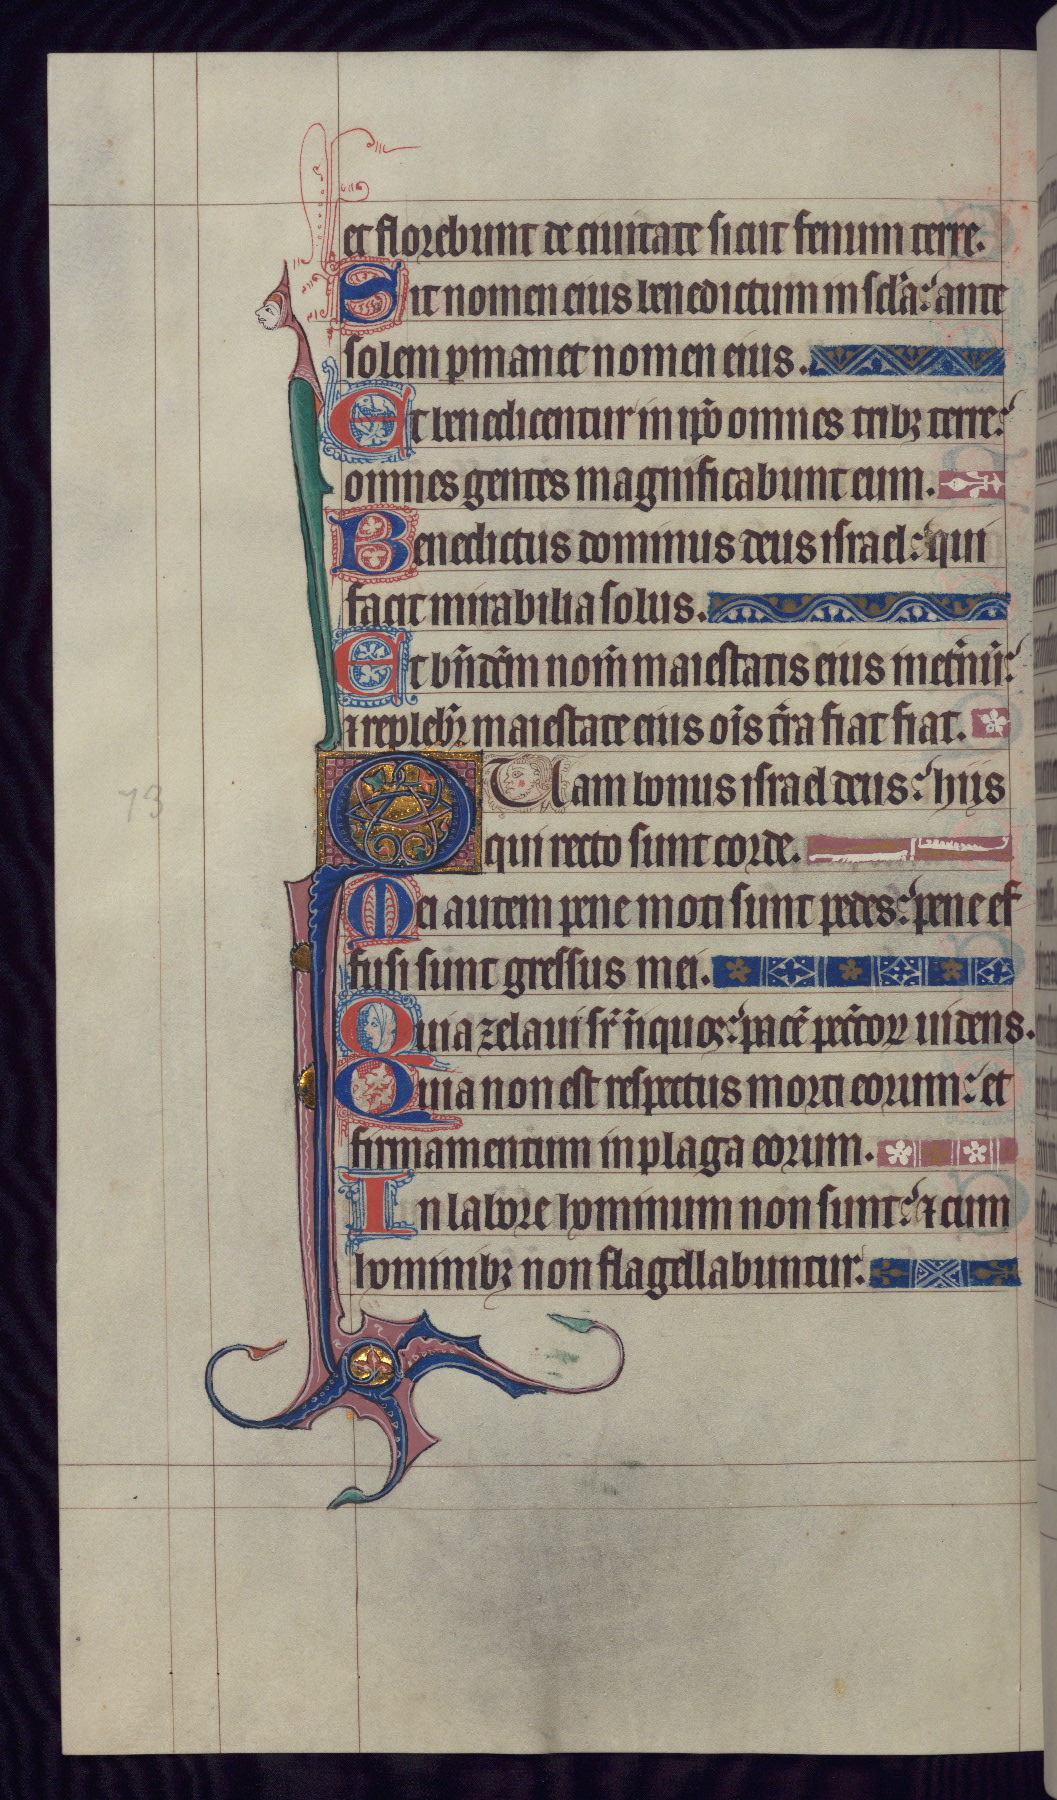 et florebunt de ciuitate sicut fenum terre.
Sit nomen eius benedictum in scl̃a: ante
solem pmanet nomen eius.
Et benedicentur in ip̃o omnes tribꝫ terre:
omnes gentes magnificabunt eum.
Benedictus dominus deus israel: qui
facit mirabilia solus.
Et bñdc̃m nom̃ maiestatis eius in et̃nũ:
⁊ replebr̃ maiestate eius om̃s t̃ra fiat fiat.
QUam bonus israel deus: hiis
qui recto sunt corde.
73
Mei autem pene moti sunt pedes: pene ef
fusi sunt gressus mei.
Quia zelaui sr̃ iñiquos: pacẽ pecc̃torꝝ uidens.
Quia non est respectus morti eorum: et
firmamentum in plaga eorum.
In labore hominum non sunt: ⁊ cum
hominibꝫ non flagellabuntur.